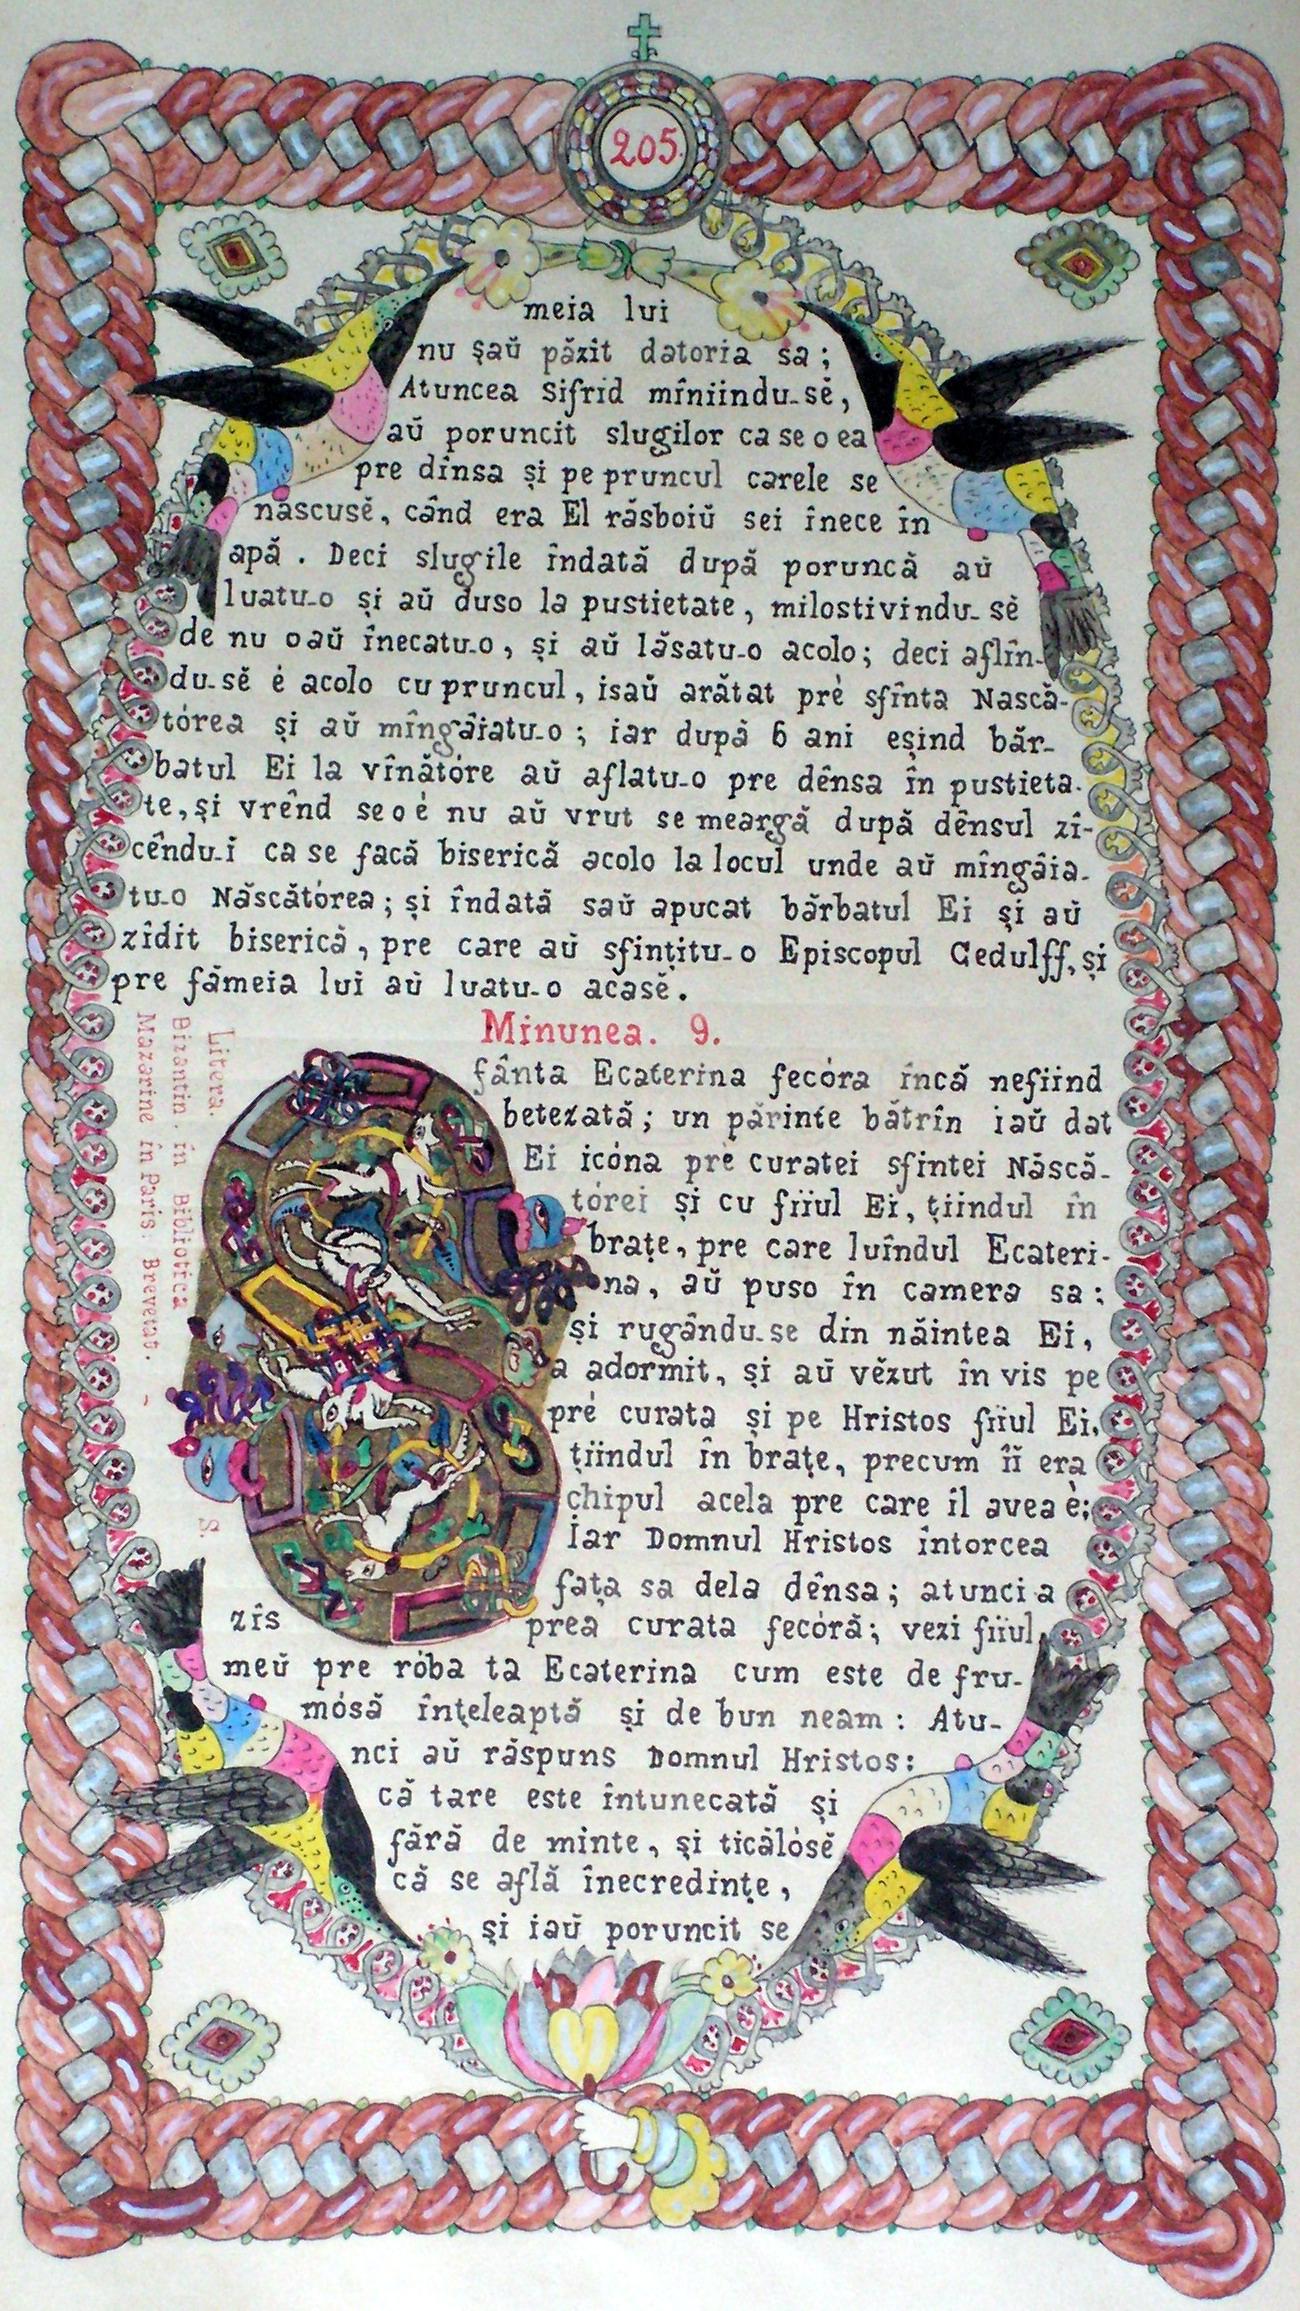 205.
meia lui
nu șaŭ păzit datoria sa;
Atuncea Sifrid mîniindu-sĕ,
aŭ poruncit slugilor ca se o ea
pre dînsa și pe pruncul carele se
născusĕ, când era El răsboiŭ sei înece în
apă. Deci slugile îndată după poruncă aŭ
luatu-o și aŭ duso la pustietate, milostivindu-sĕ
de nu oaŭ înecatu-o, și aŭ lăsatu-o acolo; deci aflîn-
du-sĕ ė acolo cu pruncul, isaŭ arătat prė sfînta Nască-
tórea și aŭ mîngăiatu-o; iar după 6 ani eșind băr-
batul Ei la vînătóre aŭ aflatu-o pre dênsa în pustieta-
te, și vrênd se o ė nu aŭ vrut se meargă după dênsul zî-
cêndu-i ca se facă biserică acolo la locul unde aŭ mîngâia-
tu-o Născătórea; și îndată saŭ apucat bărbatul Ei și aŭ
zîdit biserică, pre care aŭ sfințitu-o Episcopul Gedulff, și
pre fămeia lui aŭ luatu-o acasĕ.
Minunea. 9.
Litera
Bizantin. în Bibliotica
Mazarine în Paris: Brevetat. -
S.
fânta Ecaterina fecóra încă nefiind
betezată; un părinte bătrîn iaŭ dat
Ei icóna prė curatei sfintei Născă-
tórei și cu fiïul Ei, țiindul în
brațe, pre care luîndul Ecateri-
na, aŭ puso în camera sa;
și rugându-se din năintea Ei,
a adormit, și aŭ vĕzut în vis pe
prė curata și pe Hristos fiïul Ei,
țiindul în brațe, precum îĭ era
chipul acela pre care il avea ė;
Iar Domnul Hristos întorcea
fața sa dela dênsa; atunci a
zîs prea curata fecóră; vezi fiïul
meŭ pre róba ta Ecaterina cum este de fru-
mósă înțeleaptă și de bun neam: Atu-
nci aŭ răspuns Domnul Hristos:
că tare este întunecată și
fără de minte, și ticălósĕ
că se află înecredințe,
și iaŭ poruncit se